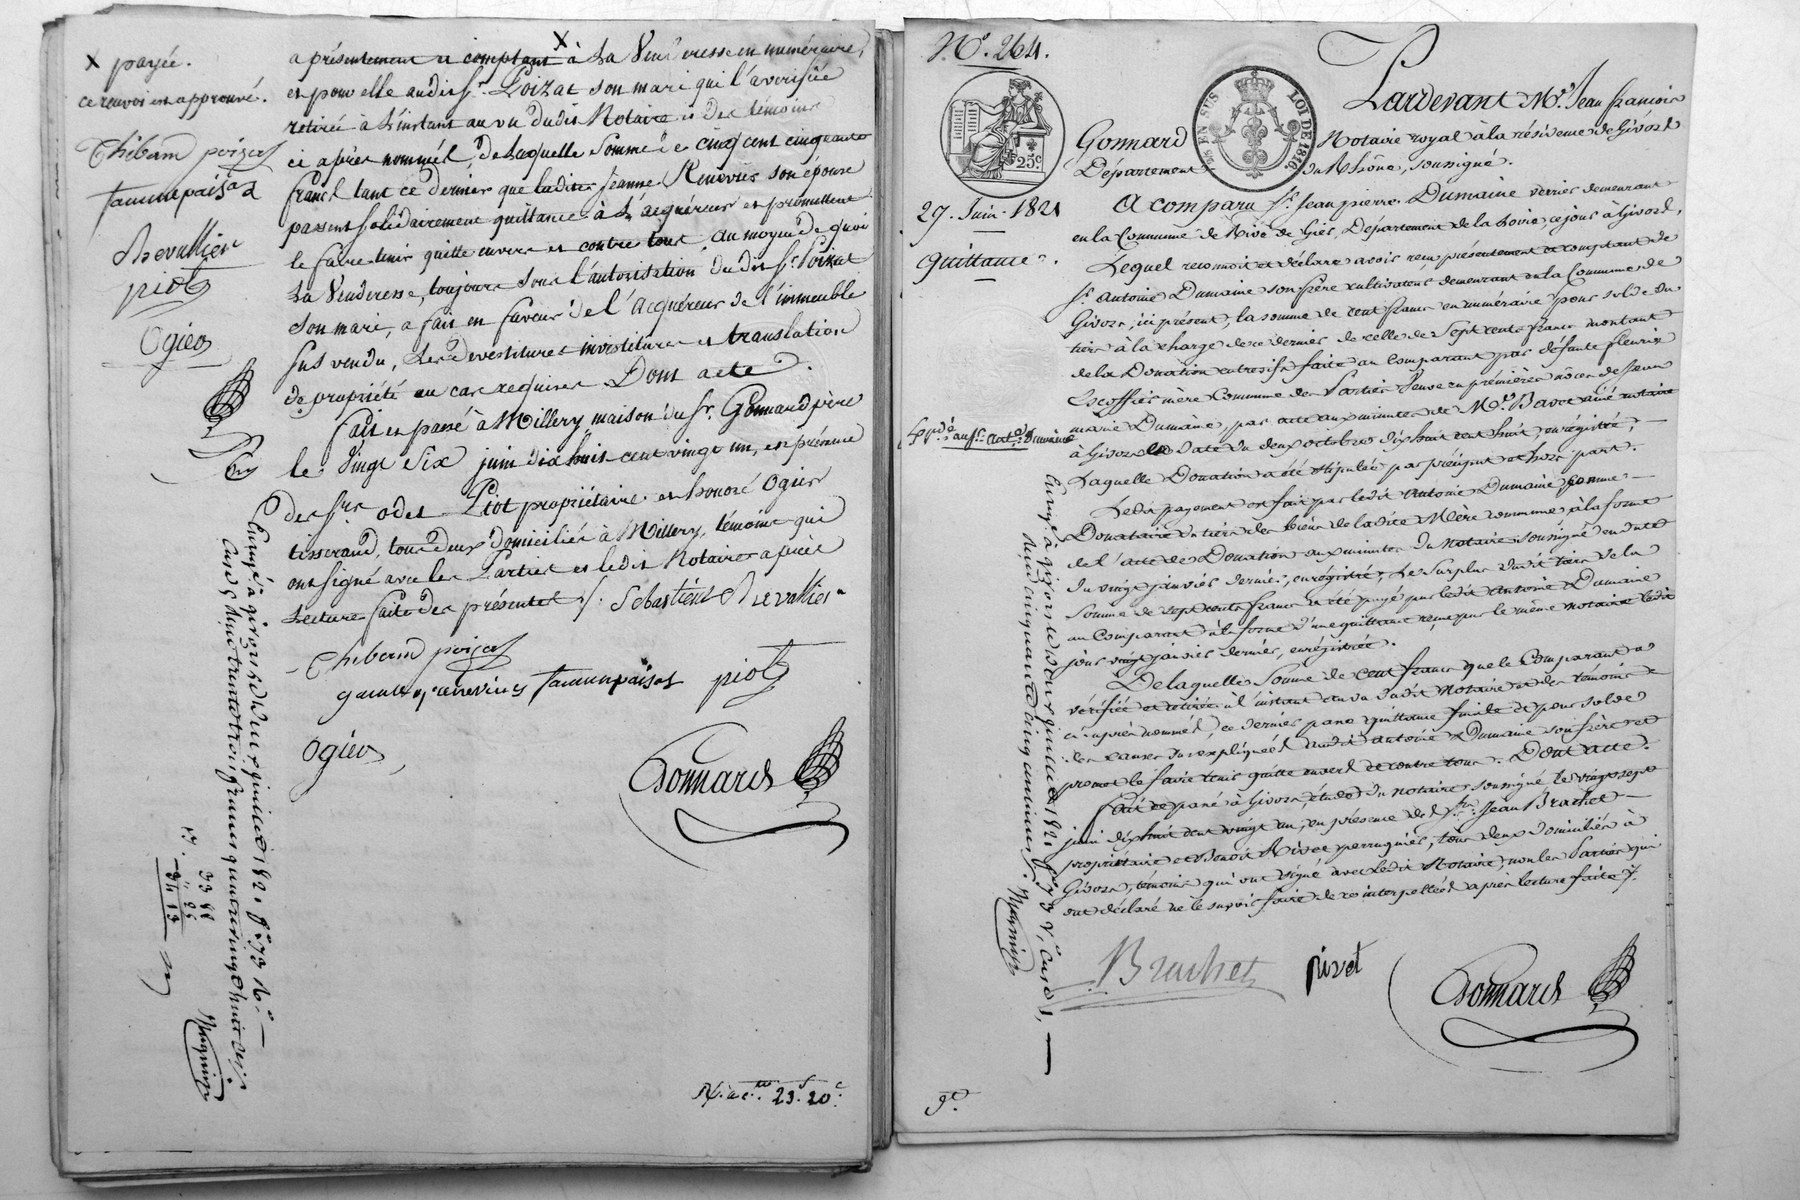 X payée.
ce renvoi est approuvé.
Thibaud poizat
Chevallier
piot
Ogier
X
a présentement et comptant à La Venderesse en numéraire,
et pour elle audit Sr. Poizat son mari qui l'a vérifiée
retirée à L'instant au vu dudit Notaire et des témoins
ci après nommés, de Laquelle Somme de cinq cent cinquante
francs tant ce dernier que ladite Jeanne Renevier son épouse
passent solidairement quittance à L'acquéreur et promettent
le faire tenir quitte envers et contre tous, au moyen de quoi
La Venderesse, toujours sous l'autorisation dudit Sr. Poizat
son mari, a fait en faveur de l'acquéreur de l'immeuble
sus vendu, les devestitures investitures et translation
de propriété au cas requises. Dont acte.
fait et passé à Millery maison du Sr. Gonnard père
le vingt six juin dix huit cent vingt un, en présence
des Srs. Piot propriétaire et honoré Ogier
tisserand, tous deux domiciliés à Millery, témoins qui
ont signé avec les Parties et ledit Notaire après
Lecture faite des présentes /. Sebastien Chevallier
Thibaud poizat
renevier piot
Ogier
Gonnard
Enregé. à givors le deux juillet 1821 fo. 73
23. 20c.
No. 264.
25c
EN SUS LOI DE 1816
27. Juin. 1821
Quittance.
Dumaine
Pardevant Me. Jean françois
Gonnard Notaire royal à la résidence de Givors
Département du Rhône, soussigné.
A comparu Sr. Jean pierre Dumaine verrier demeurant
en la Commune de Rive de Gier, Département de la Loire, ce jour à Givors,
Lequel reconnoit et déclare avoir reçu présentement et comptant de
Sr. Antoine Dumaine son frère cultivateur demeurant en la Commune de
Givors, ici présent, la somme de cent francs en numéraire pour solde du
tiers à la charge de ce dernier de celle de Sept cents francs montant
de la Donation entrevifs faite au Comparant par défunte fleurie
Escoffier mère Commune des Parties Veuve en premières nôces de Jean
marie Dumaine, par acte aux minutes de Me. Bavet ainé notaire
à Givors en date du deux octobre dix huit cent huit, enrégistré,
Laquelle Donation a été stipulée par préciput et hors part.
Ledit payement est fait par ledit Antoine Dumaine comme
Donataire du tiers des biens de ladite Mère commune à la forme
de l'acte de Donation aux minutes du Notaire soussigné en date
du vingt janvier dernier, enrégistré, Le Surplus dudit tiers de la
Somme de sept cents francs a été payé par ledit Antoine Dumaine
au Comparant à la forme d'une quittance reçue par le même notaire ledit
jour vingt janvier dernier, enrégistrée.
De laquelle Somme de cent francs que le Comparant a
vérifiée et retirée à l'instant au vu dudit Notaire et des témoins
ci après nommés, ce dernier passe quittance finale et pour solde
des causes sus expliquées audit Antoine Dumaine son frère et
promet le faire tenir quitte envers et contre tous. Dont acte.
fait et passé à Givors, étude du Notaire soussigné le vingt sept
juin dix huit cent vingt un, en présence des Srs. Jean Brachet
propriétaire et Benoit Rivet perruquier, tous deux domiciliés à
Givors, témoins qui ont signé avec ledit Notaire, non les Parties qui
ont déclaré ne le savoir faire de ce interpellées après lecture faite /.
Enregé. à givors le deux juillet 1821
Brachet
rivet
Gonnard